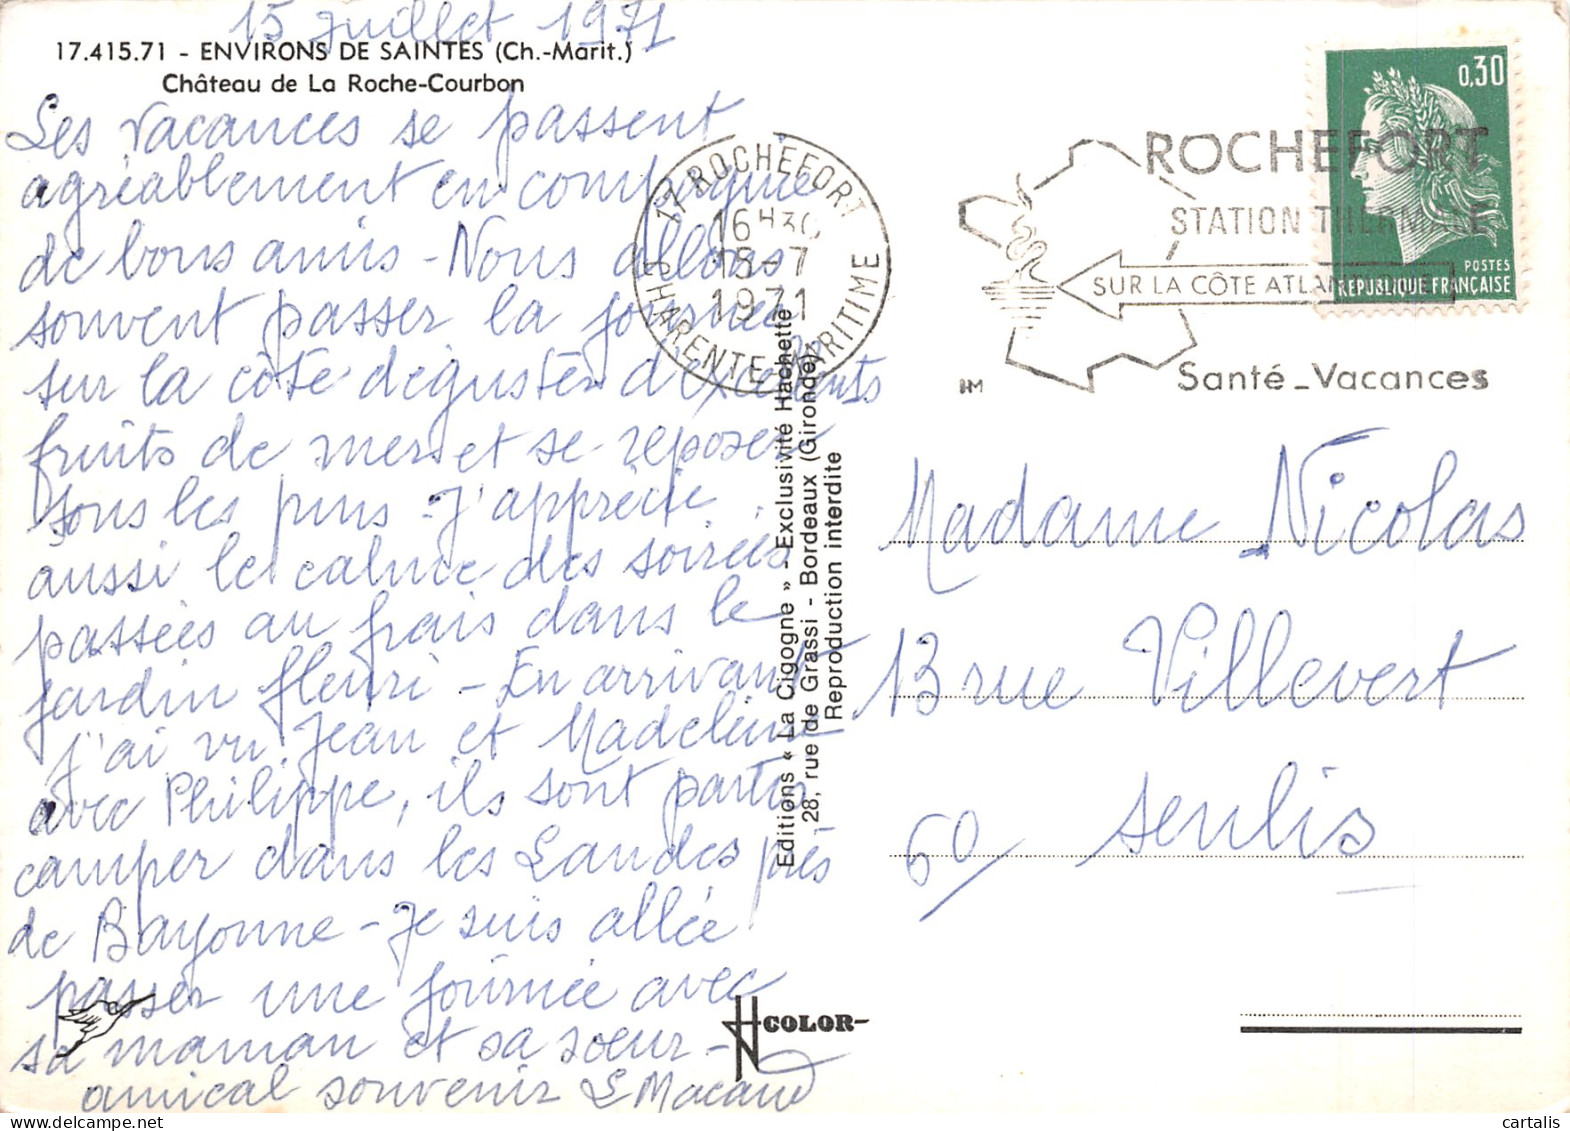 15 juillet 1971
17.415.71 - ENVIRONS DE SAINTES (Ch.-Marit.)
Château de La Roche-Courbon
Les vacances se passent
agréablement en compagnie
de bons amis - Nous allons
souvent passer la journée
sur la côte déguster d'excellents
fruits de mer et se reposer
sous les pins - J'apprécie
aussi le calme des soirées
passées au frais dans le
jardin fleuri - En arrivant
j'ai vu Jean et Madeleine
avec Philippe, ils sont partis
camper dans les Landes près
de Bayonne - Je suis allée
passer une journée avec
sa maman et sa soeur -
amical souvenir
Editions « La Cigogne » - Exclusivité Hachette
28, rue de Grassi - Bordeaux (Gironde)
Reproduction interdite
COLOR
17 ROCHEFORT
16H30
15-7
1971
CHARENTE-MARITIME
ROCHEFORT
STATION THERMALE
SUR LA CÔTE ATLA
Santé - Vacances
0,30
POSTES
REPUBLIQUE FRANÇAISE
Madame Nicolas
13 rue Villevert
60/ Senlis
cartalis
www.delcampe.net